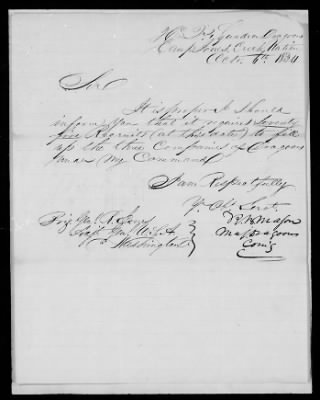 Hd Qrs Squadron Dragoons
Camp Jones, Creek Nation
Octr 6th 1834
Sir
It is proper I should
inform you that it requires Seventy
five Recruits (at this date) to fill
up the three Companies of Dragoons
under my Command
I am Respectfully
Yr Obt Servt
R B Mason
Maj Dragoons
Comg
Brig Gen R Jones
Adjt Genl U.S.A
Washington